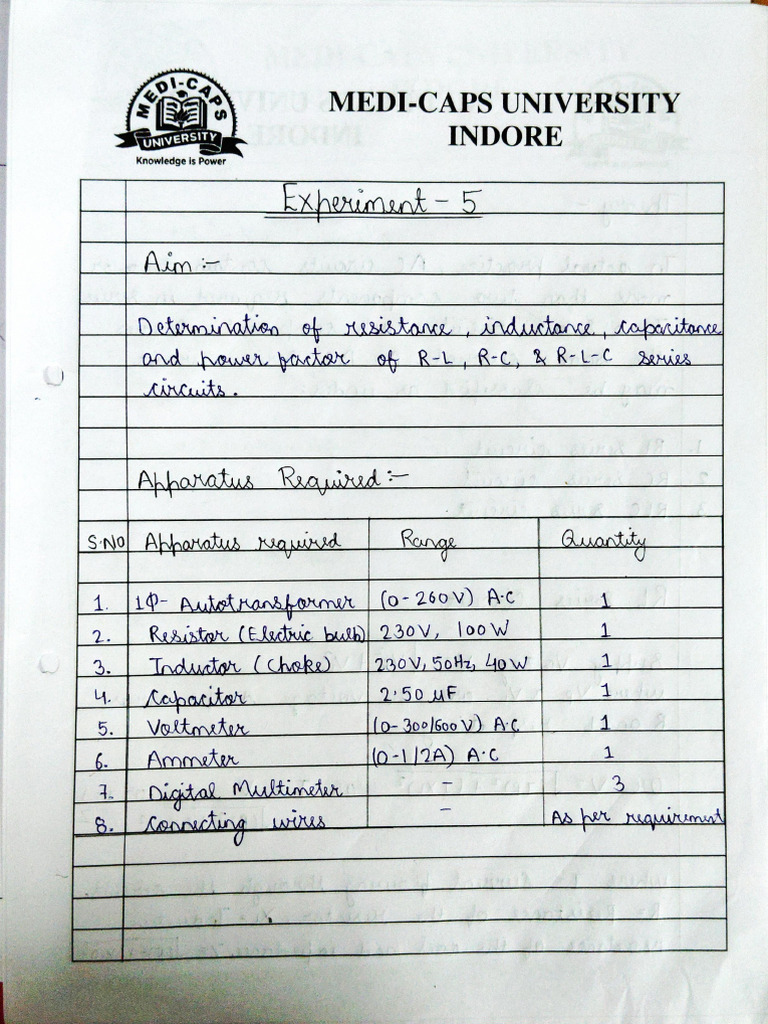 MEDI-CAPS
UNIVERSITY
Knowledge is Power
MEDI-CAPS UNIVERSITY
INDORE
Experiment - 5
Aim :-
Determination of resistance, inductance, capacitance
and power factor of R-L, R-C, & R-L-C series
circuits.
Apparatus Required :-
S.NO Apparatus required Range Quantity
1. 1Φ- Autotransformer (0-260V) A.C 1
2. Resistor (Electric bulb) 230V, 100W 1
3. Inductor (Choke) 230V, 50Hz, 40W 1
4. Capacitor 2.50 μF 1
5. Voltmeter (0-300/600V) A.C 1
6. Ammeter (0-1/2A) A.C 1
7. Digital Multimeter - 3
8. Connecting wires - As per requirement